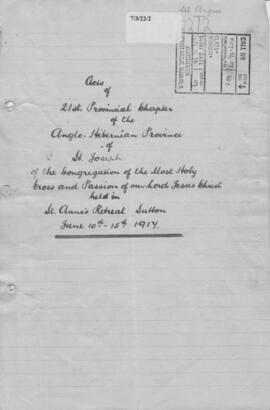 7/3/22/2
Acts
of
21st Provincial Chapter
of the
Anglo-Hibernian Province
of
St. Joseph
of the Congregation of the Most Holy
Cross and Passion of our Lord Jesus Christ
held in
St. Anne's Retreat Sutton
June 10th - 15th 1914.